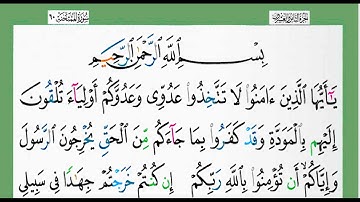 سُورَةُ المُمْتَحنَة ٦٠
بِسْمِ ٱللَّهِ ٱلرَّحْمَٰنِ ٱلرَّحِيمِ
يَٰٓأَيُّهَا ٱلَّذِينَ ءَامَنُوا۟ لَا تَتَّخِذُوا۟ عَدُوِّى وَعَدُوَّكُمْ أَوْلِيَآءَ تُلْقُونَ
إِلَيْهِم بِٱلْمَوَدَّةِ وَقَدْ كَفَرُوا۟ بِمَا جَآءَكُم مِّنَ ٱلْحَقِّ يُخْرِجُونَ ٱلرَّسُولَ
وَإِيَّاكُمْ أَن تُؤْمِنُوا۟ بِٱللَّهِ رَبِّكُمْ إِن كُنتُمْ خَرَجْتُمْ جِهَٰدًا فِى سَبِيلِى